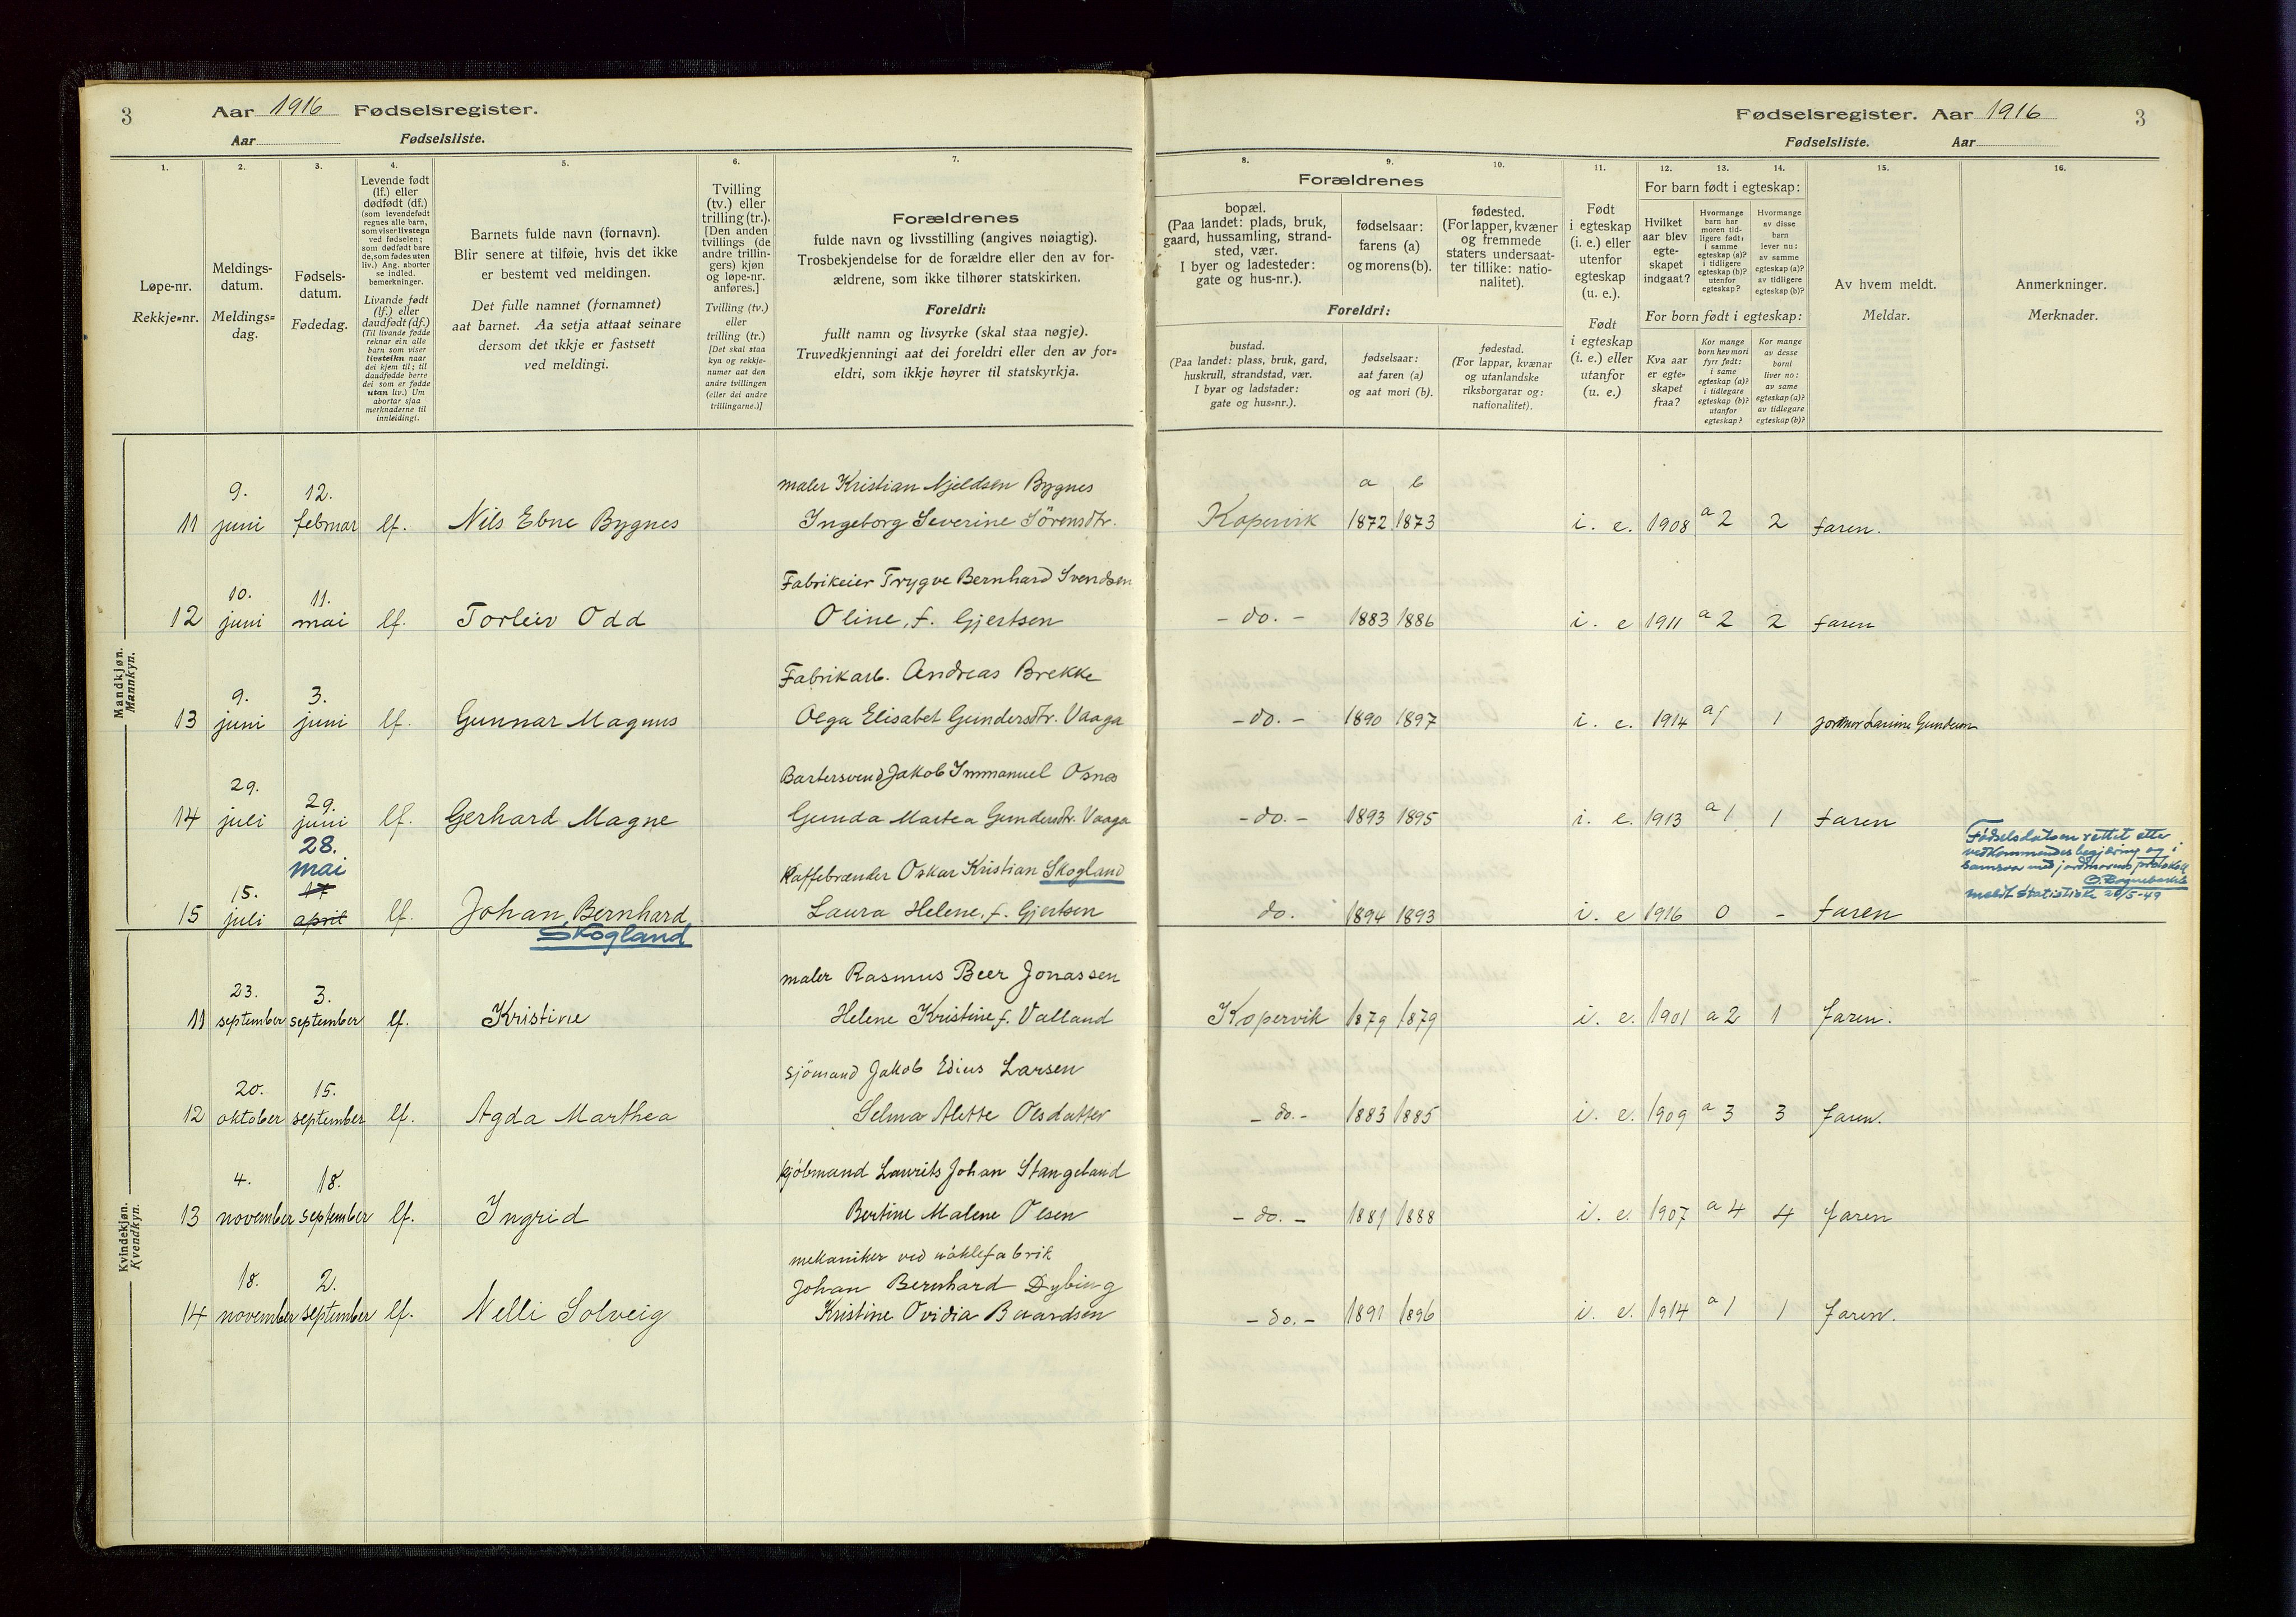 3 Aar 1916 Fødselsregister.
Aar Fødselsliste.
Fødselsregister. Aar 1916 3
Fødselsliste. Aar
1. 2. 3. 4. 5. 6. 7.
Løpe-nr.
Rekkje-nr.
Meldings-
datum.
Meldings-
dag.
Fødsels-
datum.
Fødedag.
Levende født
(lf.) eller
dødfødt (df.)
(som levendefødt
regnes alle barn,
som viser livstegn
ved fødselen;
som dødfødt bare
de, som fødes uten
liv.) Ang. aborter
se indled.
bemerkninger.
Livande født
(lf.) eller
daudfødt (df.)
(Til livande fødde
reknar ein alle
barn som viser
livsteikn naar
dei kjem til; til
daudfødde berre
dei som er fødde
utan liv.) Um
abortar sjaa
merknaderne til
innleidingi.
Barnets fulde navn (fornavn).
Blir senere at tilføie, hvis det ikke
er bestemt ved meldingen.
Det fulle namnet (fornamnet)
aat barnet. Aa setja attaat seinare
dersom det ikkje er fastsett
ved meldingi.
Tvilling
(tv.) eller
trilling (tr.).
[Den anden
tvillings (de
andre trillin-
gers) kjøn
og løpe-nr.
anføres.]
Tvilling (tv.)
eller
trilling (tr.)
[Det skal staa
kyn og rekkje-
numer aat den
andre tvillingen
(eller dei andre
trillingarne.)]
Forældrenes
fulde navn og livsstilling (angives nøiagtig).
Trosbekjendelse for de forældre eller den av for-
ældrene, som ikke tilhører statskirken.
Foreldri:
fullt namn og livsyrke (skal staa nøgje).
Truvedkjenningi aat dei foreldri eller den av for-
eldri, som ikkje høyrer til statskyrkja.
8. 9. 10. 11. 12. 13. 14. 15. 16.
Forældrenes
bopæl.
(Paa landet: plads, bruk,
gaard, hussamling, strand-
sted, vær.
I byer og ladesteder:
gate og hus-nr.).
fødselsaar:
farens (a)
og morens (b).
fødested.
(For lapper, kvæner
og fremmede
staters undersaat-
ter tillike: natio-
nalitet).
Foreldri:
bustad.
(Paa landet: plass, bruk, gard,
huskrull, strandstad, vær.
I byar og ladstader:
gate og hus-nr.).
fødselsaar:
aat faren (a)
og aat mori (b).
fødestad.
(For lappar, kvænar
og utanlandske
riksborgarar og:
nationalitet).
Født
i egteskap
(i. e.) eller
utenfor
egteskap
(u. e.).
Født
i egteskap
(i. e.) eller
utanfor
(u. e.)
For barn født i egteskap:
Hvilket
aar blev
egte-
skapet
indgaat?
Hvormange
barn har
moren tid-
ligere født:
i samme
egteskap (a)?
i tidligere
egteskap (b)?
utenfor
egteskap?
Hvormange
av disse
barn
lever nu:
av samme
egteskap (a)?
av tidligere
egteskap (b)?
For born født i egteskap:
Kva aar
er egte-
skapet
fraa?
Kor mange
born hev mori
fyrr født:
i same
egteskap (a)?
i tidlegare
egteskap (b)?
utanfor
egteskap?
Kor mange
av desse
borni
liver no:
av same
egteskap (a)?
av tidlegare
egteskap (b)?
Av hvem meldt.
Meldar.
Anmerkninger.
Merknader.
Mandkjøn.
Mannkyn.
9. 12. maler Kristian Njeldsen Bygnes a b
11 juni februar lf. Nils Ebne Bygnes Ingeborg Severine Sörensdtr. Kopervik 1872 1873 i. e. 1908 a 2 2 faren.
10. 11. Fabrikeier Trygve Bernhard Svendsen
12 juni mai lf. Torleiv Odd Oline, f. Gjertsen - do. - 1883 1886 i. e 1911 a 2 2 faren
9. 3. Fabrikarb. Andreas Brekke
13 juni juni lf. Gunnar Magnus Olga Elisabet Gundersdtr. Vaaga - do. - 1890 1897 i. e. 1914 a 1 1 jormor Gundersen
29. 29. Jakob Immanuel Osnes
14 juli juni lf. Gerhard Magne Gunda Martea Gundersdtr. Vaaga - do. - 1893 1895 i. e. 1913 a 1 1 faren
28.
mai
15. 17 Kaffebrænder Oskar Kristian Skogland
15 juli april lf. Johan Bernhard Laura Helene, f. Gjertsen do. 1894 1893 i. e 1916 0 - faren
Skogland
Fødselsdatoen rettet etter
vedkommendes begjæring og i
samsvar med jordmorens protokoll
meldt Statistisk 20/5-49
Kvindekjøn.
Kvendkyn.
23. 3. maler Rasmus Beer Jonassen
11 september september lf. Kristine Helene Kristine f. Valland Kopervik 1879 1879 i. e. 1901 a 2 1 faren.
20. 15. sjömand Jakob Edius Larsen
12 oktober september lf. Agda Marthea Selma Alette Olsdatter - do. - 1883 1885 i. e. 1909 a 3 3 faren.
4. 18. kjöbmand Laurits Johan Stangeland
13 november september lf. Ingrid Bertine Malene Olsen - do. - 1881 1888 i. e. 1907 a 4 4 faren
mekaniker ved nöklefabrik
18. 2. Johan Bernhard Dybing
14 november september lf. Nelli Solveig Kristine Ovidia Baardsen - do. - 1891 1896 i. e. 1914 a 1 1 faren.